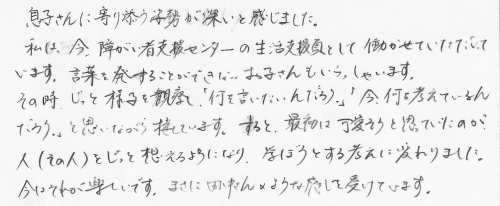 息子さんに寄り添う姿勢が深いと感じました。
私は、今、障がい者支援センターの生活支援員として働かせていただいて
います。言葉を発することができないお子さんもいらっしゃいます。
その時、じっと様子を観察し、「何を言いたいんだろう。」「今、何を考えているん
だろう。」と思いながら接しています。すると、最初は可愛そうと思っていたのが、
人（その人）とじっと想えるようになり、学ぼうとする考えに変わりました。
今はそれが楽しいです。まさに ような癒しを受けています。